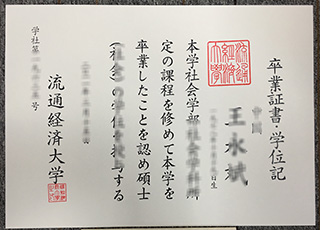 卒業証書・学位記
中國
王水斌
日生
本学社会学部社会学科所
定の課程を修めて本学を
卒業したことを認め碩士
(社会)の学位を授与する
流通経済大学
学社第
号
流通經済大學